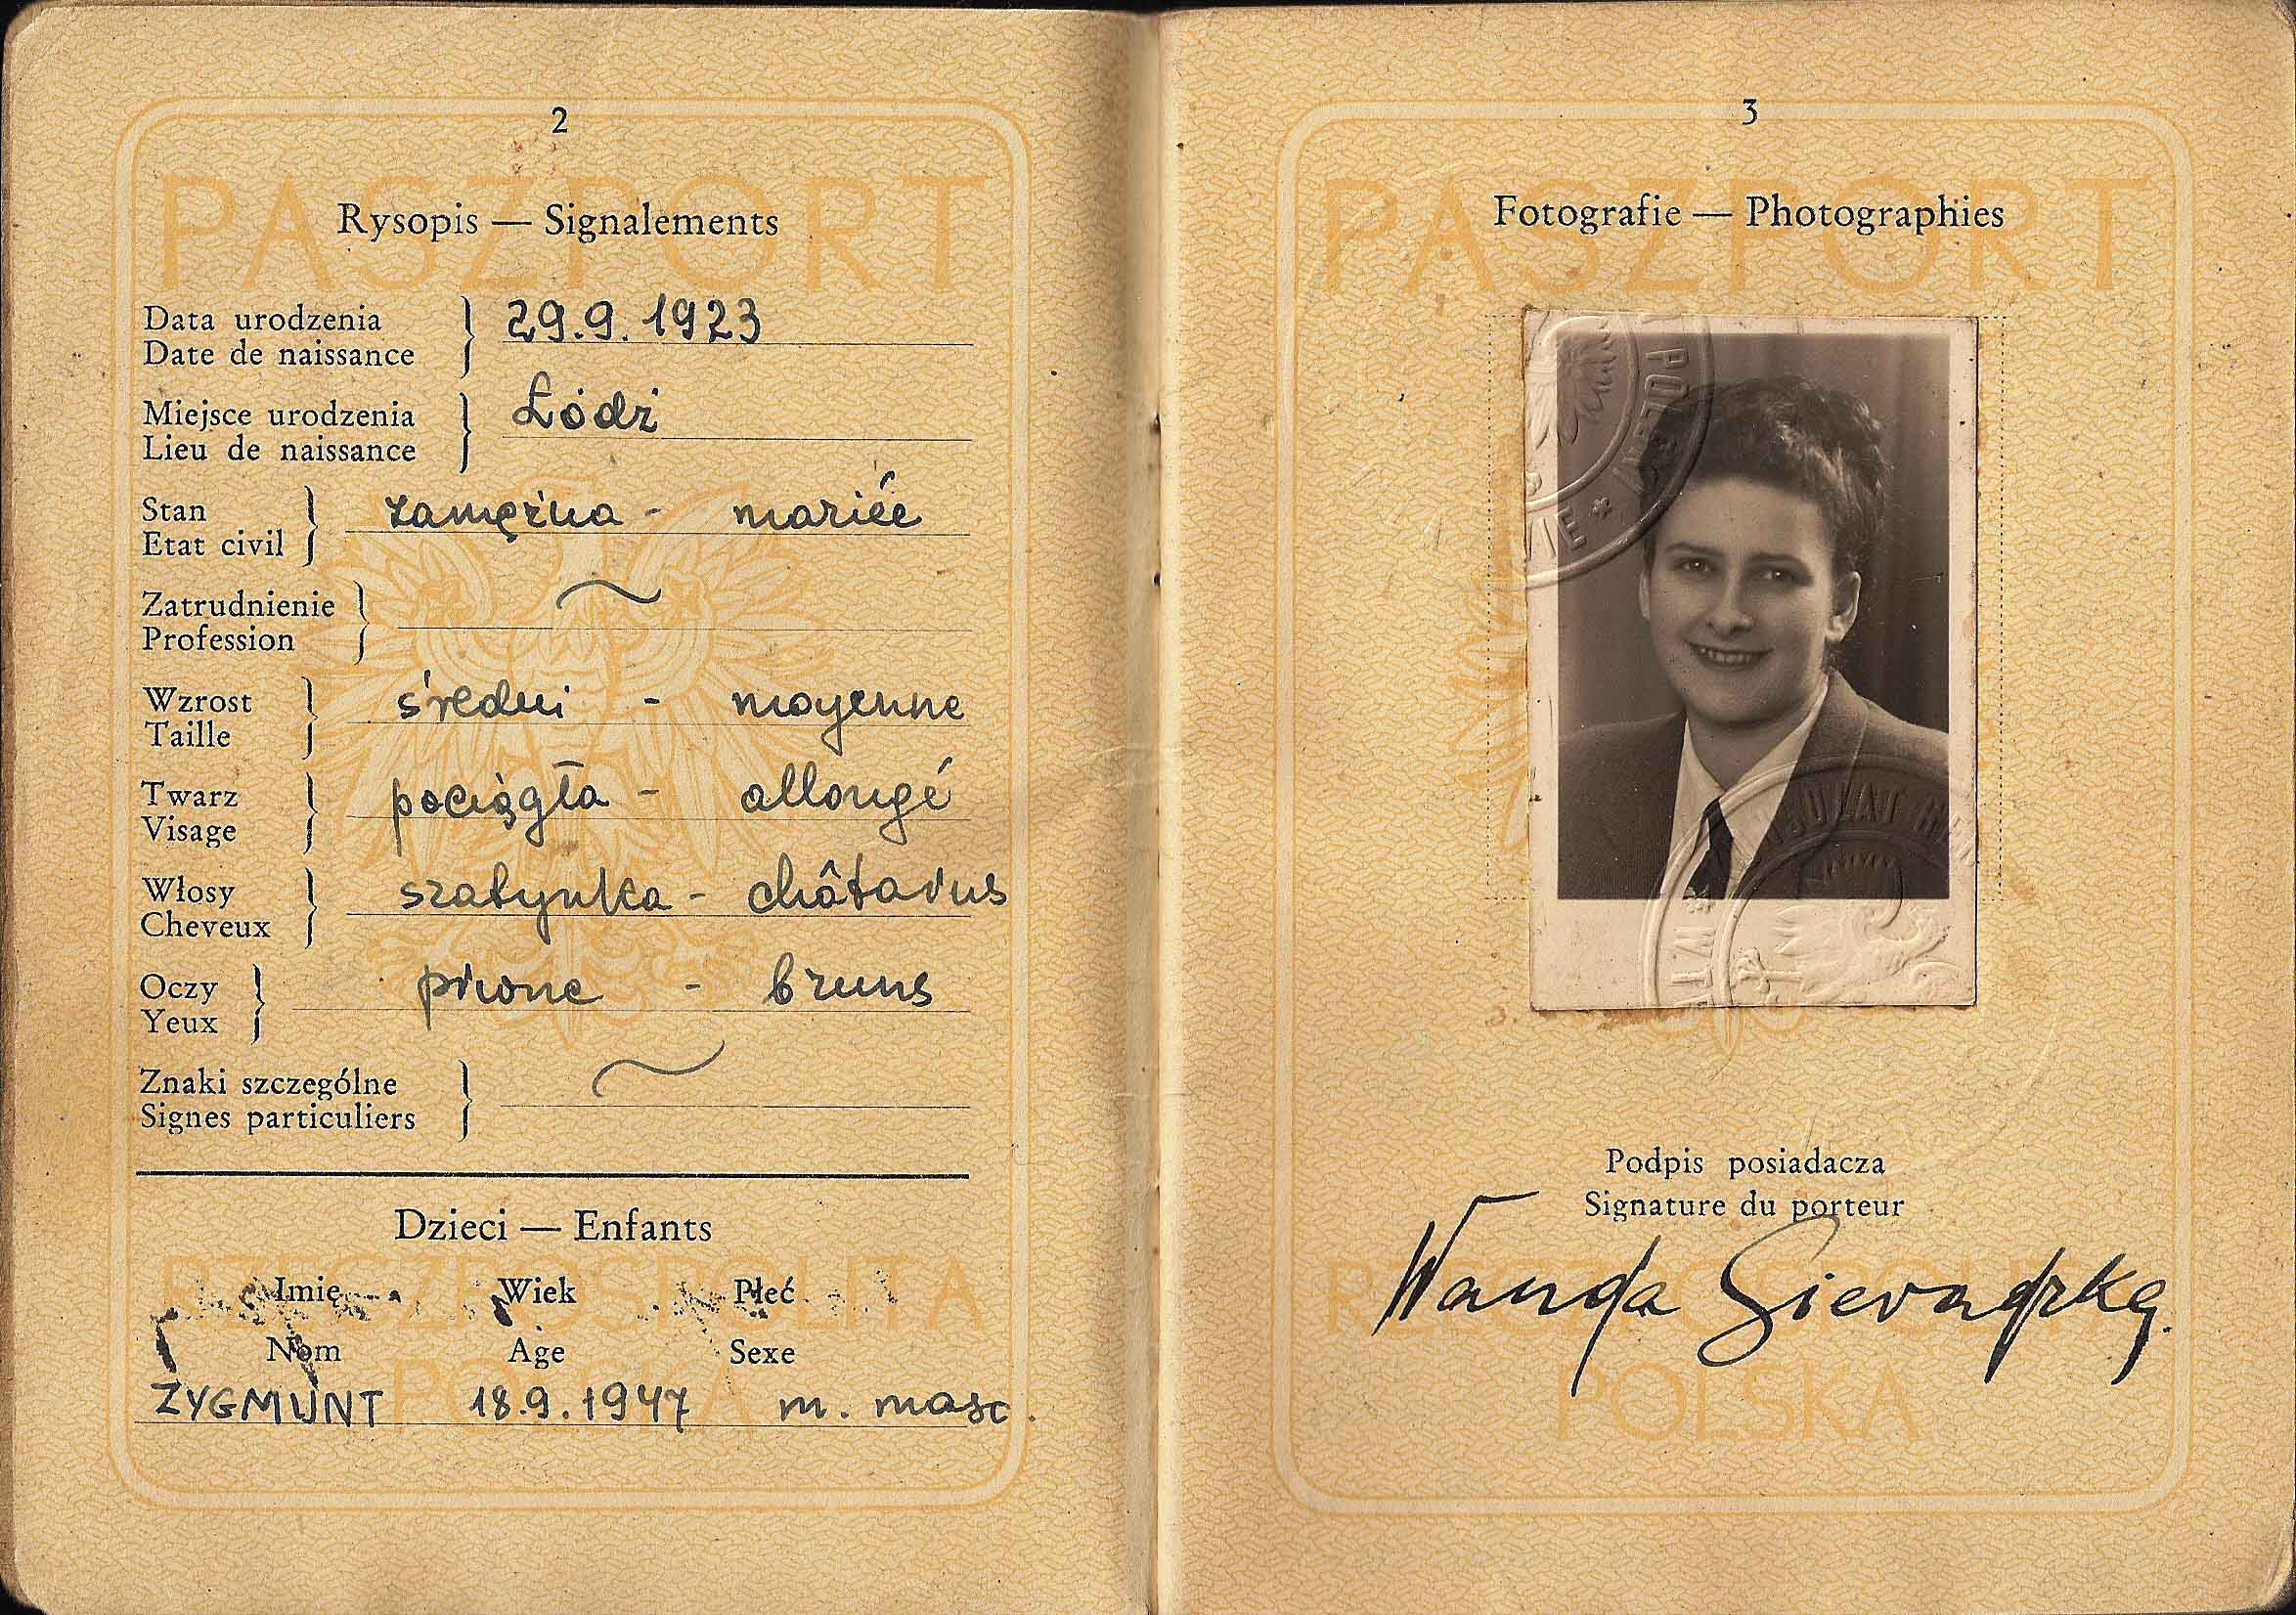 2
PASZPORT
Rysopis — Signalements
Data urodzenia
Date de naissance
29.9.1923
Miejsce urodzenia
Lieu de naissance
Łódź
Stan
Etat civil
zamężna - mariée
Zatrudnienie
Profession
~
Wzrost
Taille
średni - moyenne
Twarz
Visage
pociągła - allongé
Włosy
Cheveux
szatynka - châtains
Oczy
Yeux
piwne - bruns
Znaki szczególne
Signes particuliers
~
Dzieci — Enfants
RZECZPOSPOLITA
Imię Wiek Płeć
Nom Age Sexe
POLSKA
ZYGMUNT 18.9.1947 m. masc.
3
PASZPORT
Fotografie — Photographies
Podpis posiadacza
Signature du porteur
Wanda
RZECZPOSPOLITA
POLSKA